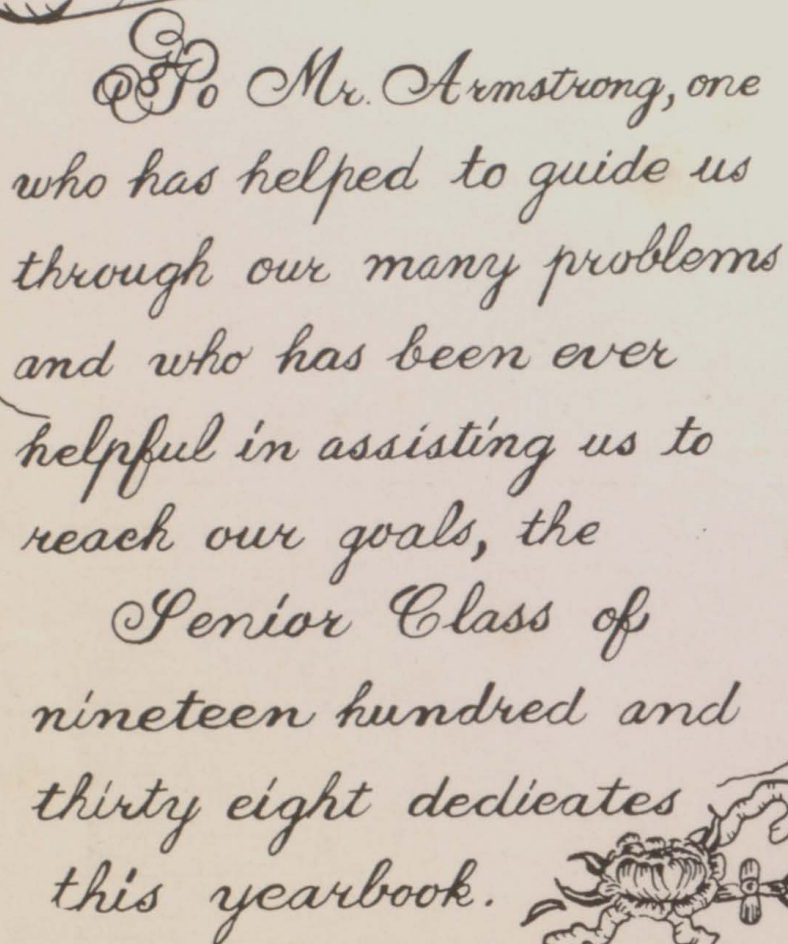 To Mr. Armstrong, one
who has helped to guide us
through our many problems
and who has been ever
helpful in assisting us to
reach our goals, the
Senior Class of
nineteen hundred and
thirty eight dedicates
this yearbook.